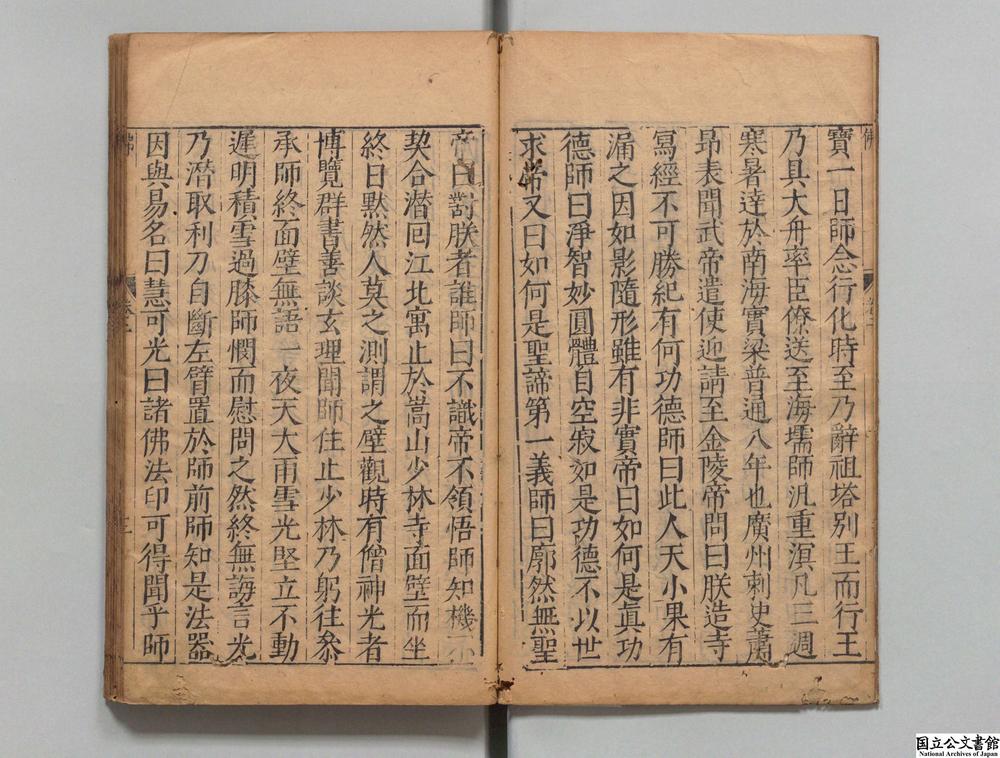 寶一日師念行化時至乃辭祖塔別王而行王
乃具大舟率臣僚送至海壖師汎重溟凡三週
寒暑達於南海實梁普通八年也廣州刺史蕭
昂表聞武帝遣使迎請至金陵帝問曰朕造寺
寫經不可勝紀有何功德師曰此人天小果有
漏之因如影隨形雖有非實帝曰如何是眞功
德師曰淨智妙圓體自空寂如是功德不以世
求帝又曰如何是聖諦第一義師曰廓然無聖
帝曰對朕者誰師曰不識帝不領悟師知機不
契合潛回江北寓止於嵩山少林寺面壁而坐
終日默然人莫之測謂之壁觀時有僧神光者
博覽群書善談玄理聞師住止少林乃躬往叅
承師終面壁無語一夜天大雨雪光堅立不動
遲明積雪過膝師憫而慰問之然終無誨言光
乃潛取利刀自斷左臂置於師前師知是法器
因與易名曰慧可光曰諸佛法印可得聞乎師
佛
三
国立公文書館
National Archives of Japan